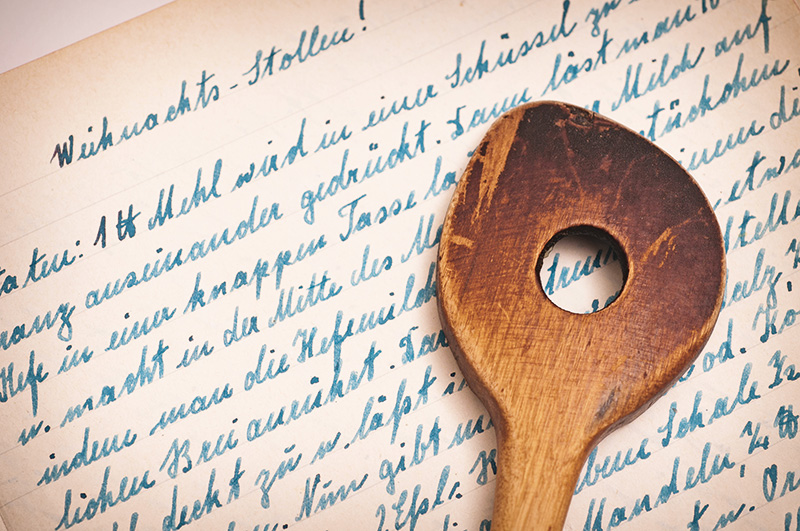 Weihnachts-Stollen!
taten: 1 ℔ Mehl wird in einer Schüssel zu
ranz auseinander gedrückt. Dann läst man
Hefe in einer knappen Tasse Milch auf
u. macht in der Mitte des stückchen
indem man die Hefemilch einem
lichen Brei anrührt. etwa
deckt zu u läßt
Nun gibt alz,
Eßl. od.
bene Schale ½
Mandeln, ¼ ℔
u. Or